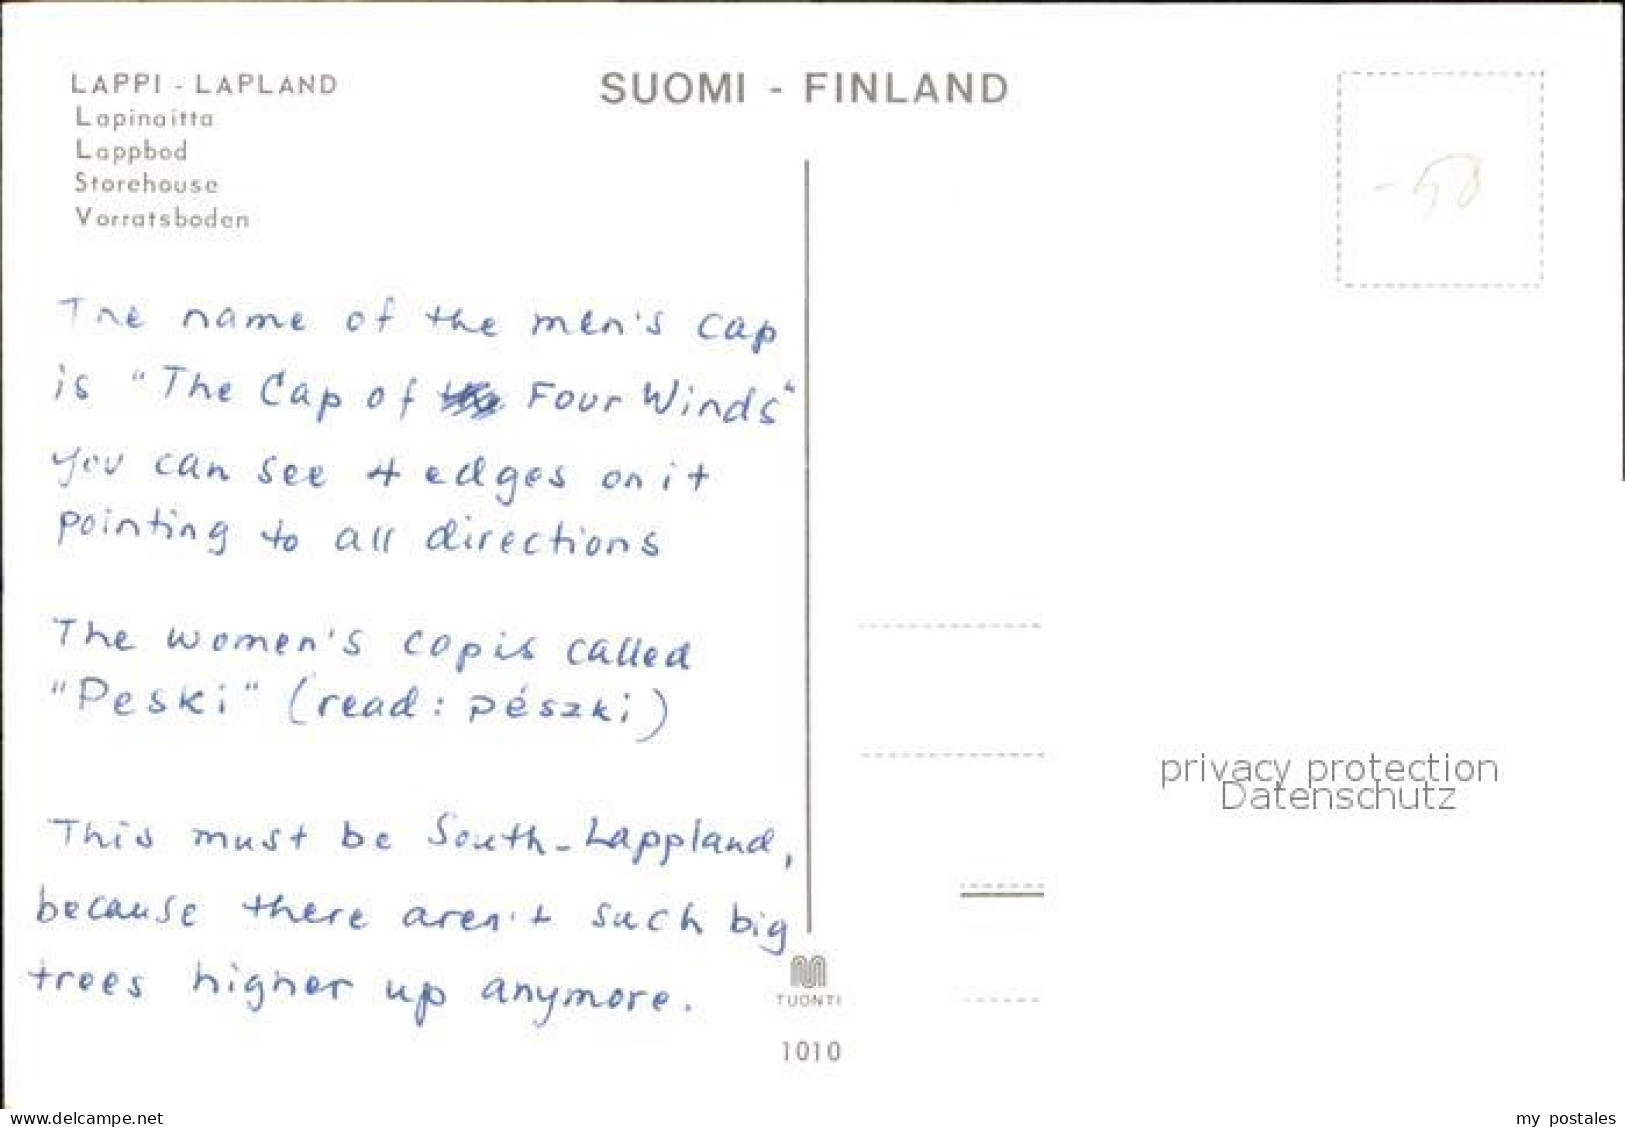 LAPPI - LAPLAND
Lapinaitta
Lappbod
Storehouse
Vorratsboden
SUOMI - FINLAND
The name of the men's cap
is "The Cap of Four Winds"
you can see 4 edges on it
pointing to all directions
The women's cap is called
"Peski" (read: pészki)
This must be South-Lappland,
because there aren't such big
trees higher up anymore.
TUONTI
1010
privacy protection
Datenschutz
www.delcampe.net
my postales